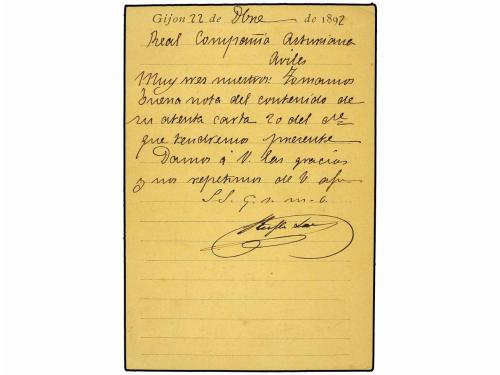 Gijon 22 de Dbre de 1892
Real Compañia Asturiana
Aviles
Muy sres nuestros: Tomamos
buena nota del contenido de
su atenta carta 20 del cte
que tendremos presente
Damos á V. las gracias
y nos repetimos de V. afmo
S.S. q. s. m. b.